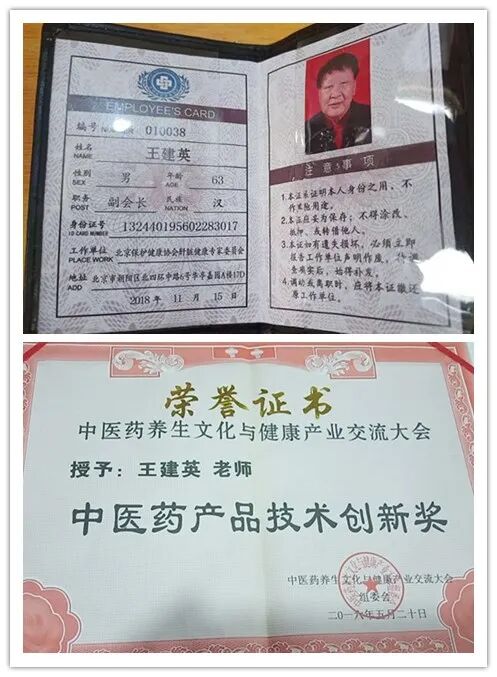 EMPLOYEE'S CARD
编号 010038
姓名 王建英
NAME
性别 男 年龄 63
SEX AGE
职务 副会长 民族 汉
POST NATION
身份证号 132440195602283017
ID CARD NUMBER
工作单位 北京保护健康协会肝脏健康专家委员会
PLACE WORK
地址 北京市朝阳区北四环中路6号华亭嘉园A楼17D
ADD
2018 年 11 月 15 日
注意事项
1.本证来证明本人身份之用,不
作其他用途。
2.本证应妥为保存;不得涂改、
抵押、或转借他人。
3.本证如有遗失损坏,必须立即
报告工作单位声明作废,待调
查核实后,始得补发。
4.调动或离职时,应将本证缴还
原工作单位。
荣誉证书
中医药养生文化与健康产业交流大会
授予:王建英 老师
中医药产品技术创新奖
中医药养生文化与健康产业交流大会
组委会
二〇一八年五月二十日